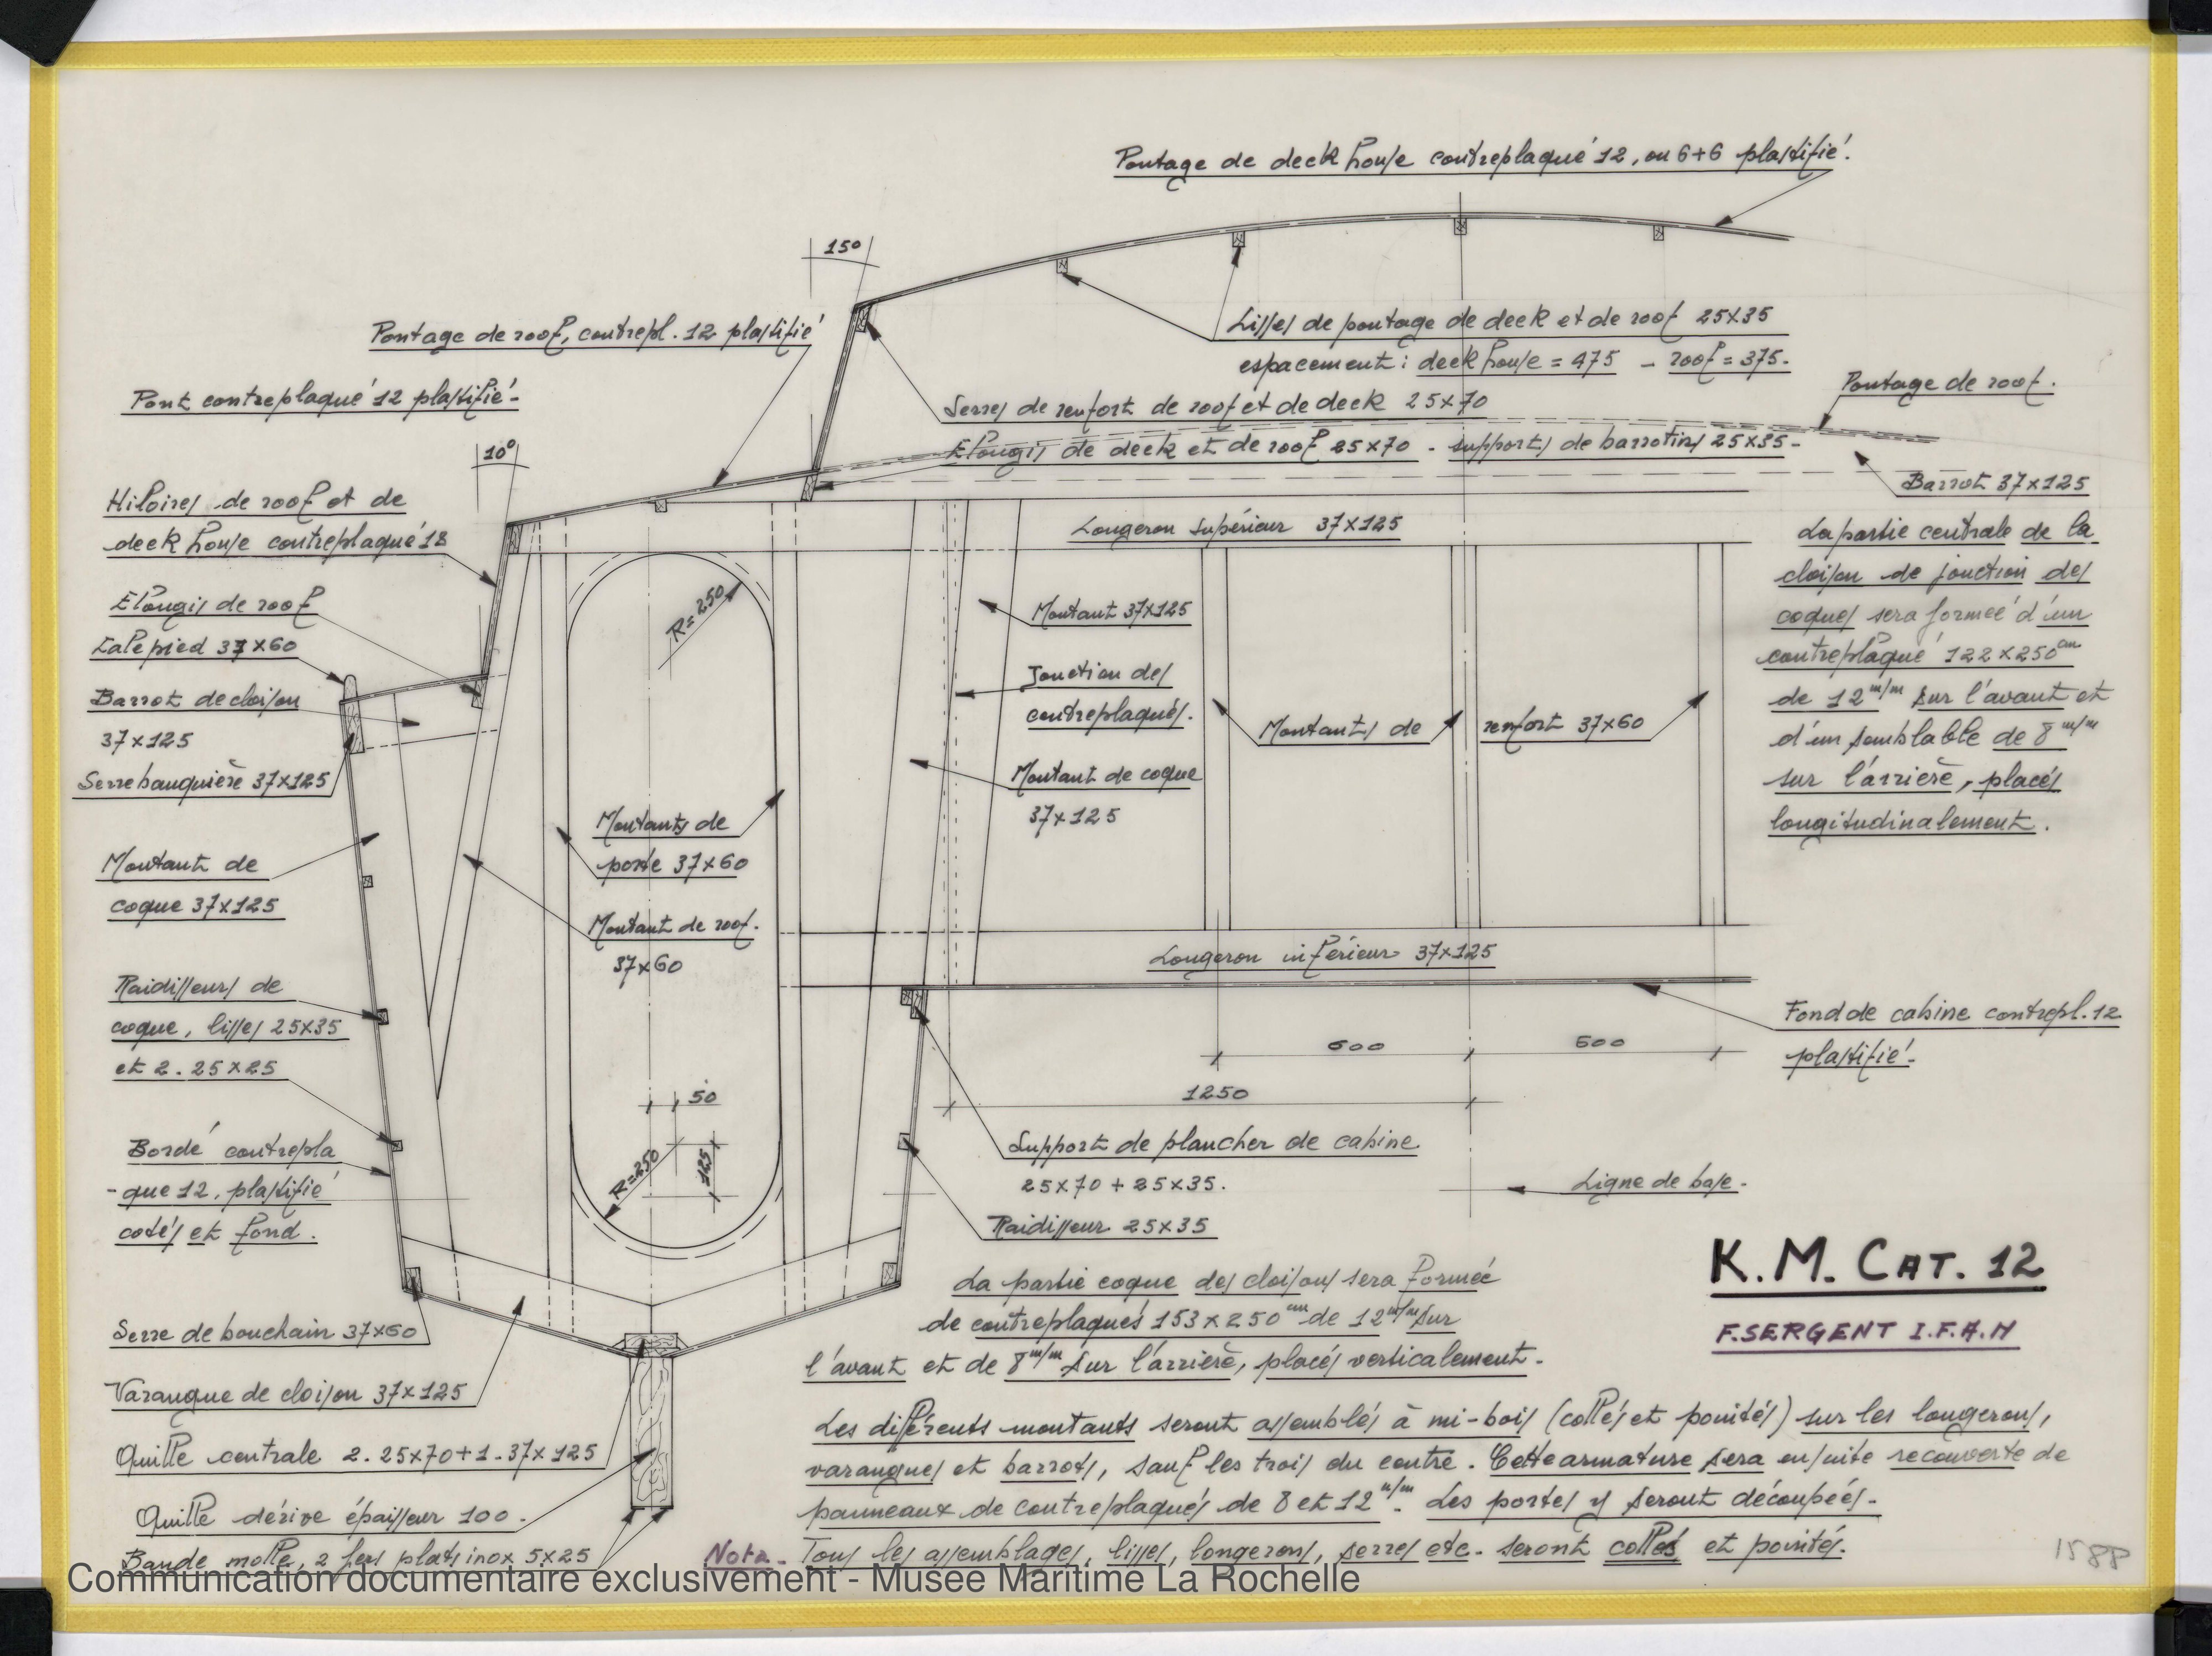 Pontage de deck house contreplaqué 12, ou 6+6 plastifié.
15°
Pontage de roof, contrepl. 12 plastifié
Lisses de pontage de deck et de roof 25x35
espacement : deck house = 475 - roof = 375.
Pont contreplaqué 12 plastifié.
Serres de renfort de roof et de deck 25x70
Pontage de roof.
Elongis de deck et de roof 25x70 - supports de barrotins 25x35-
10°
Barrot 37x125
Hiloires de roof et de
deck house contreplaqué 18
Longeron supérieur 37x125
La partie centrale de la
cloison de jonction des
coques sera formée d'un
contreplaqué 122x250 cm
de 12 m/m sur l'avant et
d'un semblable de 8 m/m
sur l'arrière, placés
longitudinalement.
Elongis de roof
Calepied 37x60
Barrot de cloison
37x125
Serre bauquière 37x125
R=250
Montant 37x125
Jonction des
contreplaqués.
Montants de renfort 37x60
Montant de coque
37x125
Montants de
porte 37x60
Montant de
coque 37x125
Montant de roof.
37x60
Longeron inférieur 37x125
Raidisseurs de
coque, lisses 25x35
et 2. 25x25
Fond de cabine contrepl. 12
plastifié.
600
600
1250
50
R=250
125
Bordé contrepla
-que 12, plastifié
cotés et fond.
Support de plancher de cabine
25x70 + 25x35.
Ligne de base.
Raidisseur 25x35
K.M. CAT. 12
F.SERGENT I.F.A.N
La partie coque des cloisons sera formée
de contreplaqués 153x250 cm de 12 m/m sur
l'avant et de 8 m/m sur l'arrière, placés verticalement.
Serre de bouchain 37x60
Varangue de cloison 37x125
Quille centrale 2. 25x70+1. 37x125
Quille dérive épaisseur 100.
Bande molle, 2 fers plats inox 5x25
Les différents montants seront assemblés à mi-bois (collés et pointés) sur les longerons,
varangues et barrots, sauf les trois du centre. Cette armature sera ensuite recouverte de
panneaux de contreplaqués de 8 et 12 m/m. Les portes y seront découpées.
Nota- Tous les assemblages, lisses, longerons, serres etc. seront collés et pointés.
158P
Communication documentaire exclusivement - Musée Maritime La Rochelle